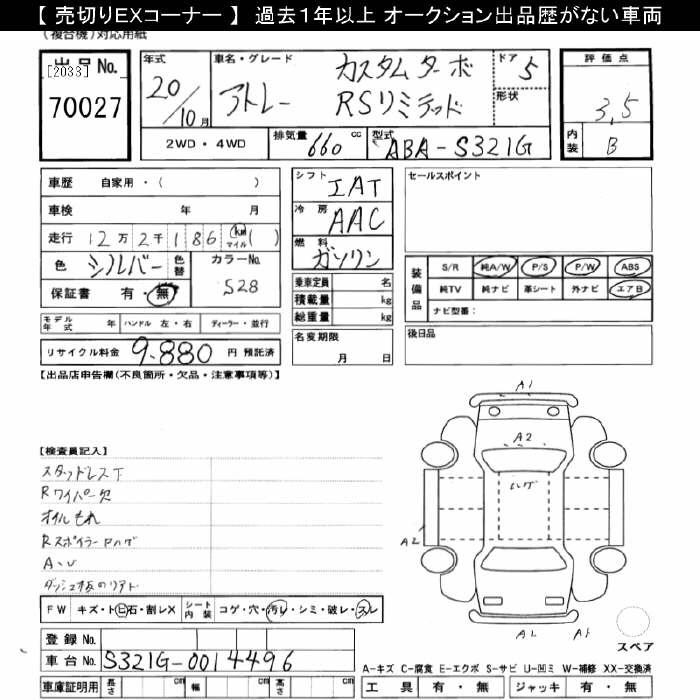 【 売切りEXコーナー 】 過去１年以上 オークション出品歴がない車両
(複合機)対応用紙
出品No.
[2033]
70027
年式 20/10月
車名・グレード
アトレー カスタムターボ
RSリミテッド
ドア 5
形状
評価点
3,5
内装 B
2WD・4WD
排気量 660 cc
型式 ABA-S321G
車歴 自家用・( )
車検 年 月
走行 12万2千186 km マイル ( )
色 シルバー 色替 カラーNo. S28
保証書 有・無
シフト IAT
冷房 AAC
燃料 ガソリン
乗車定員 名
積載量 kg
総重量 kg
セールスポイント
装備品 S/R 純A/W P/S P/W ABS
純TV 純ナビ 革シート 外ナビ エアB
ナビ型番:
モデル年式 年 ハンドル 左・右 ディーラー・並行
リサイクル料金 9.880 円 預託済
名変期限 月 日
後日品
【出品店申告欄(不良箇所・欠品・注意事項等)】
【検査員記入】
スタッドレス下
Rワイパー欠
オイルもれ
RスポイラーPハゲ
A・U
A1
A2
ハゲ
A2
FW キズ・ト ヒ 石・割レX シート内装 コゲ・穴・汚レ・シミ・破レ・スレ
登録No.
車台No. S321G-0014496
車庫証明用 長さ cm 幅 cm 高さ cm
スペア
A-キズ C-腐食 E-エクボ S-サビ U-凹ミ W-補修 XX-交換済
工具 有・無 ジャッキ 有・無